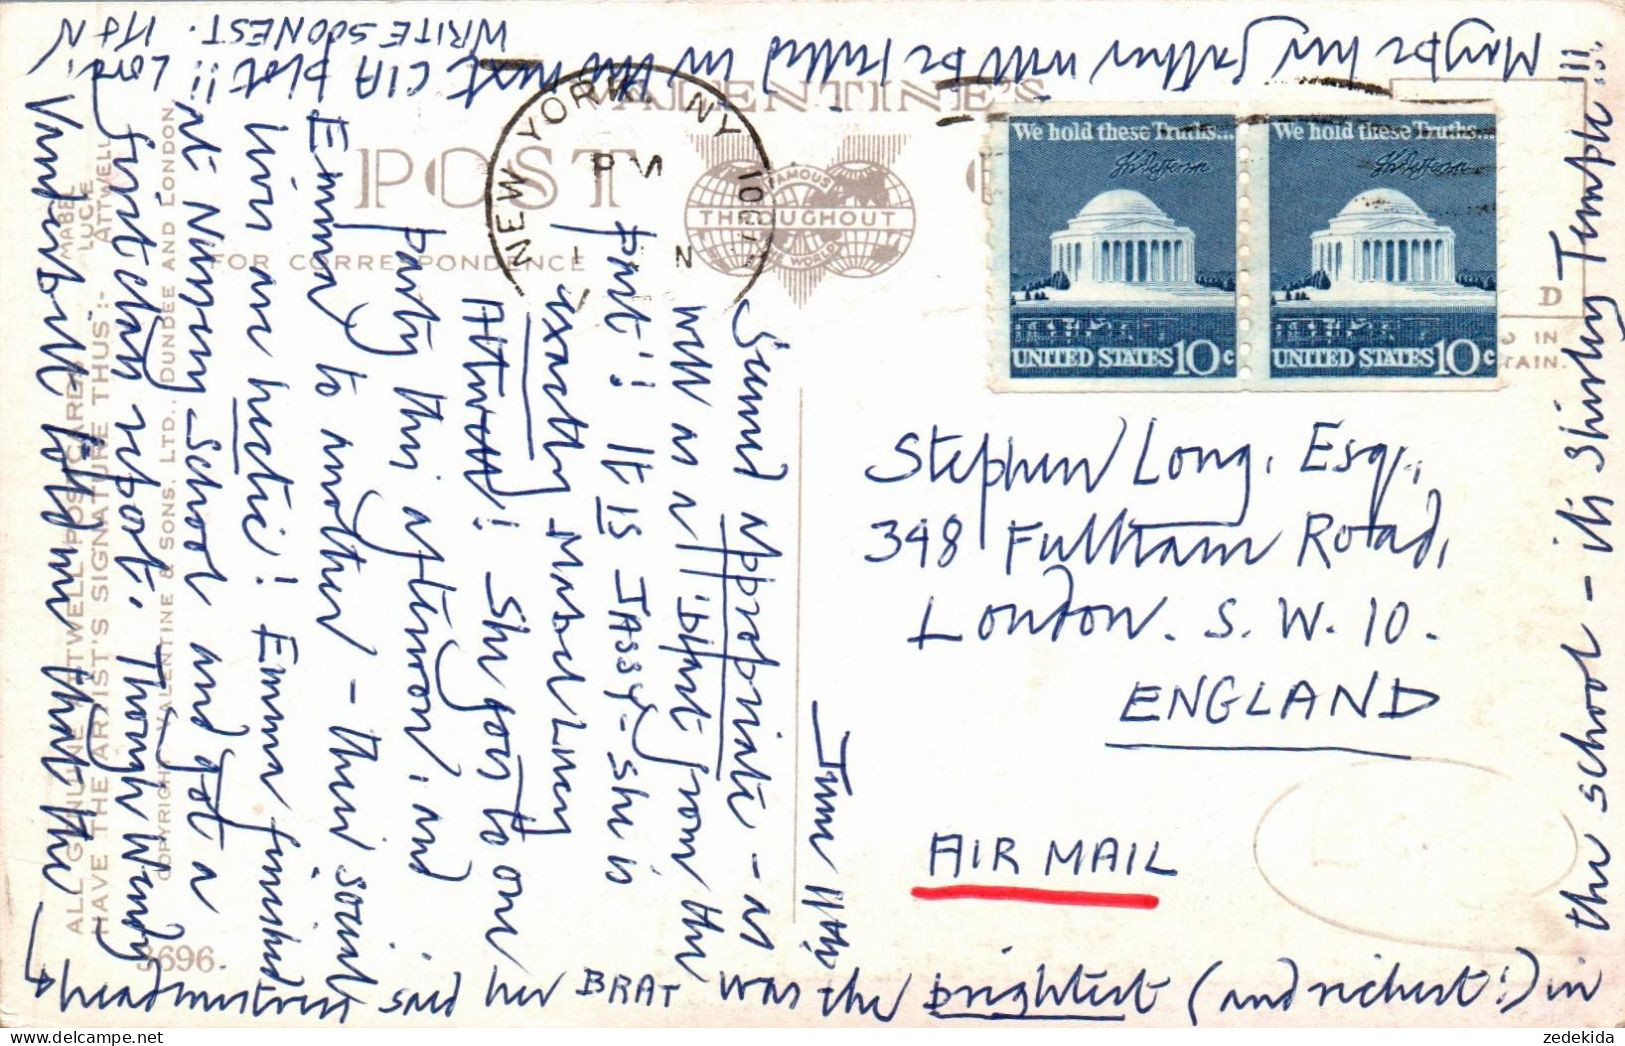 VALENTINE'S
POST
FOR CORRESPONDENCE
FAMOUS
THROUGHOUT
THE WORLD
NEW YORK, NY
PM
We hold these Truths...
UNITED STATES 10c
We hold these Truths...
UNITED STATES 10c
D
IN
TAIN.
Stephen Long, Esq.,
348 Fulham Road,
London. S. W. 10.
ENGLAND
AIR MAIL
June 11th
Seemed appropriate - as
well as a 'part from the
past'! It IS JASSY - she is
exactly Mabel Lucy
Attwell! She goes to one
party this afternoon, and
Emma to another - their social
lives are hectic! Emma finished
at Nursery School and got a
first class report. Though Wendy
Vanderbilt told me that the
→ headmistress said her BRAT was the brightest (and richest!) in
the school - it's Shirley Temple!!!
Maybe her father will be killed in the next CIA plot!! Love
WRITE SOONEST.
ALL GENUINE ATTWELL POSTCARDS
HAVE THE ARTIST'S SIGNATURE THUS:-
MABEL
LUCIE
ATTWELL
COPYRIGHT, VALENTINE & SONS, LTD., DUNDEE AND LONDON
3696.
zedekida